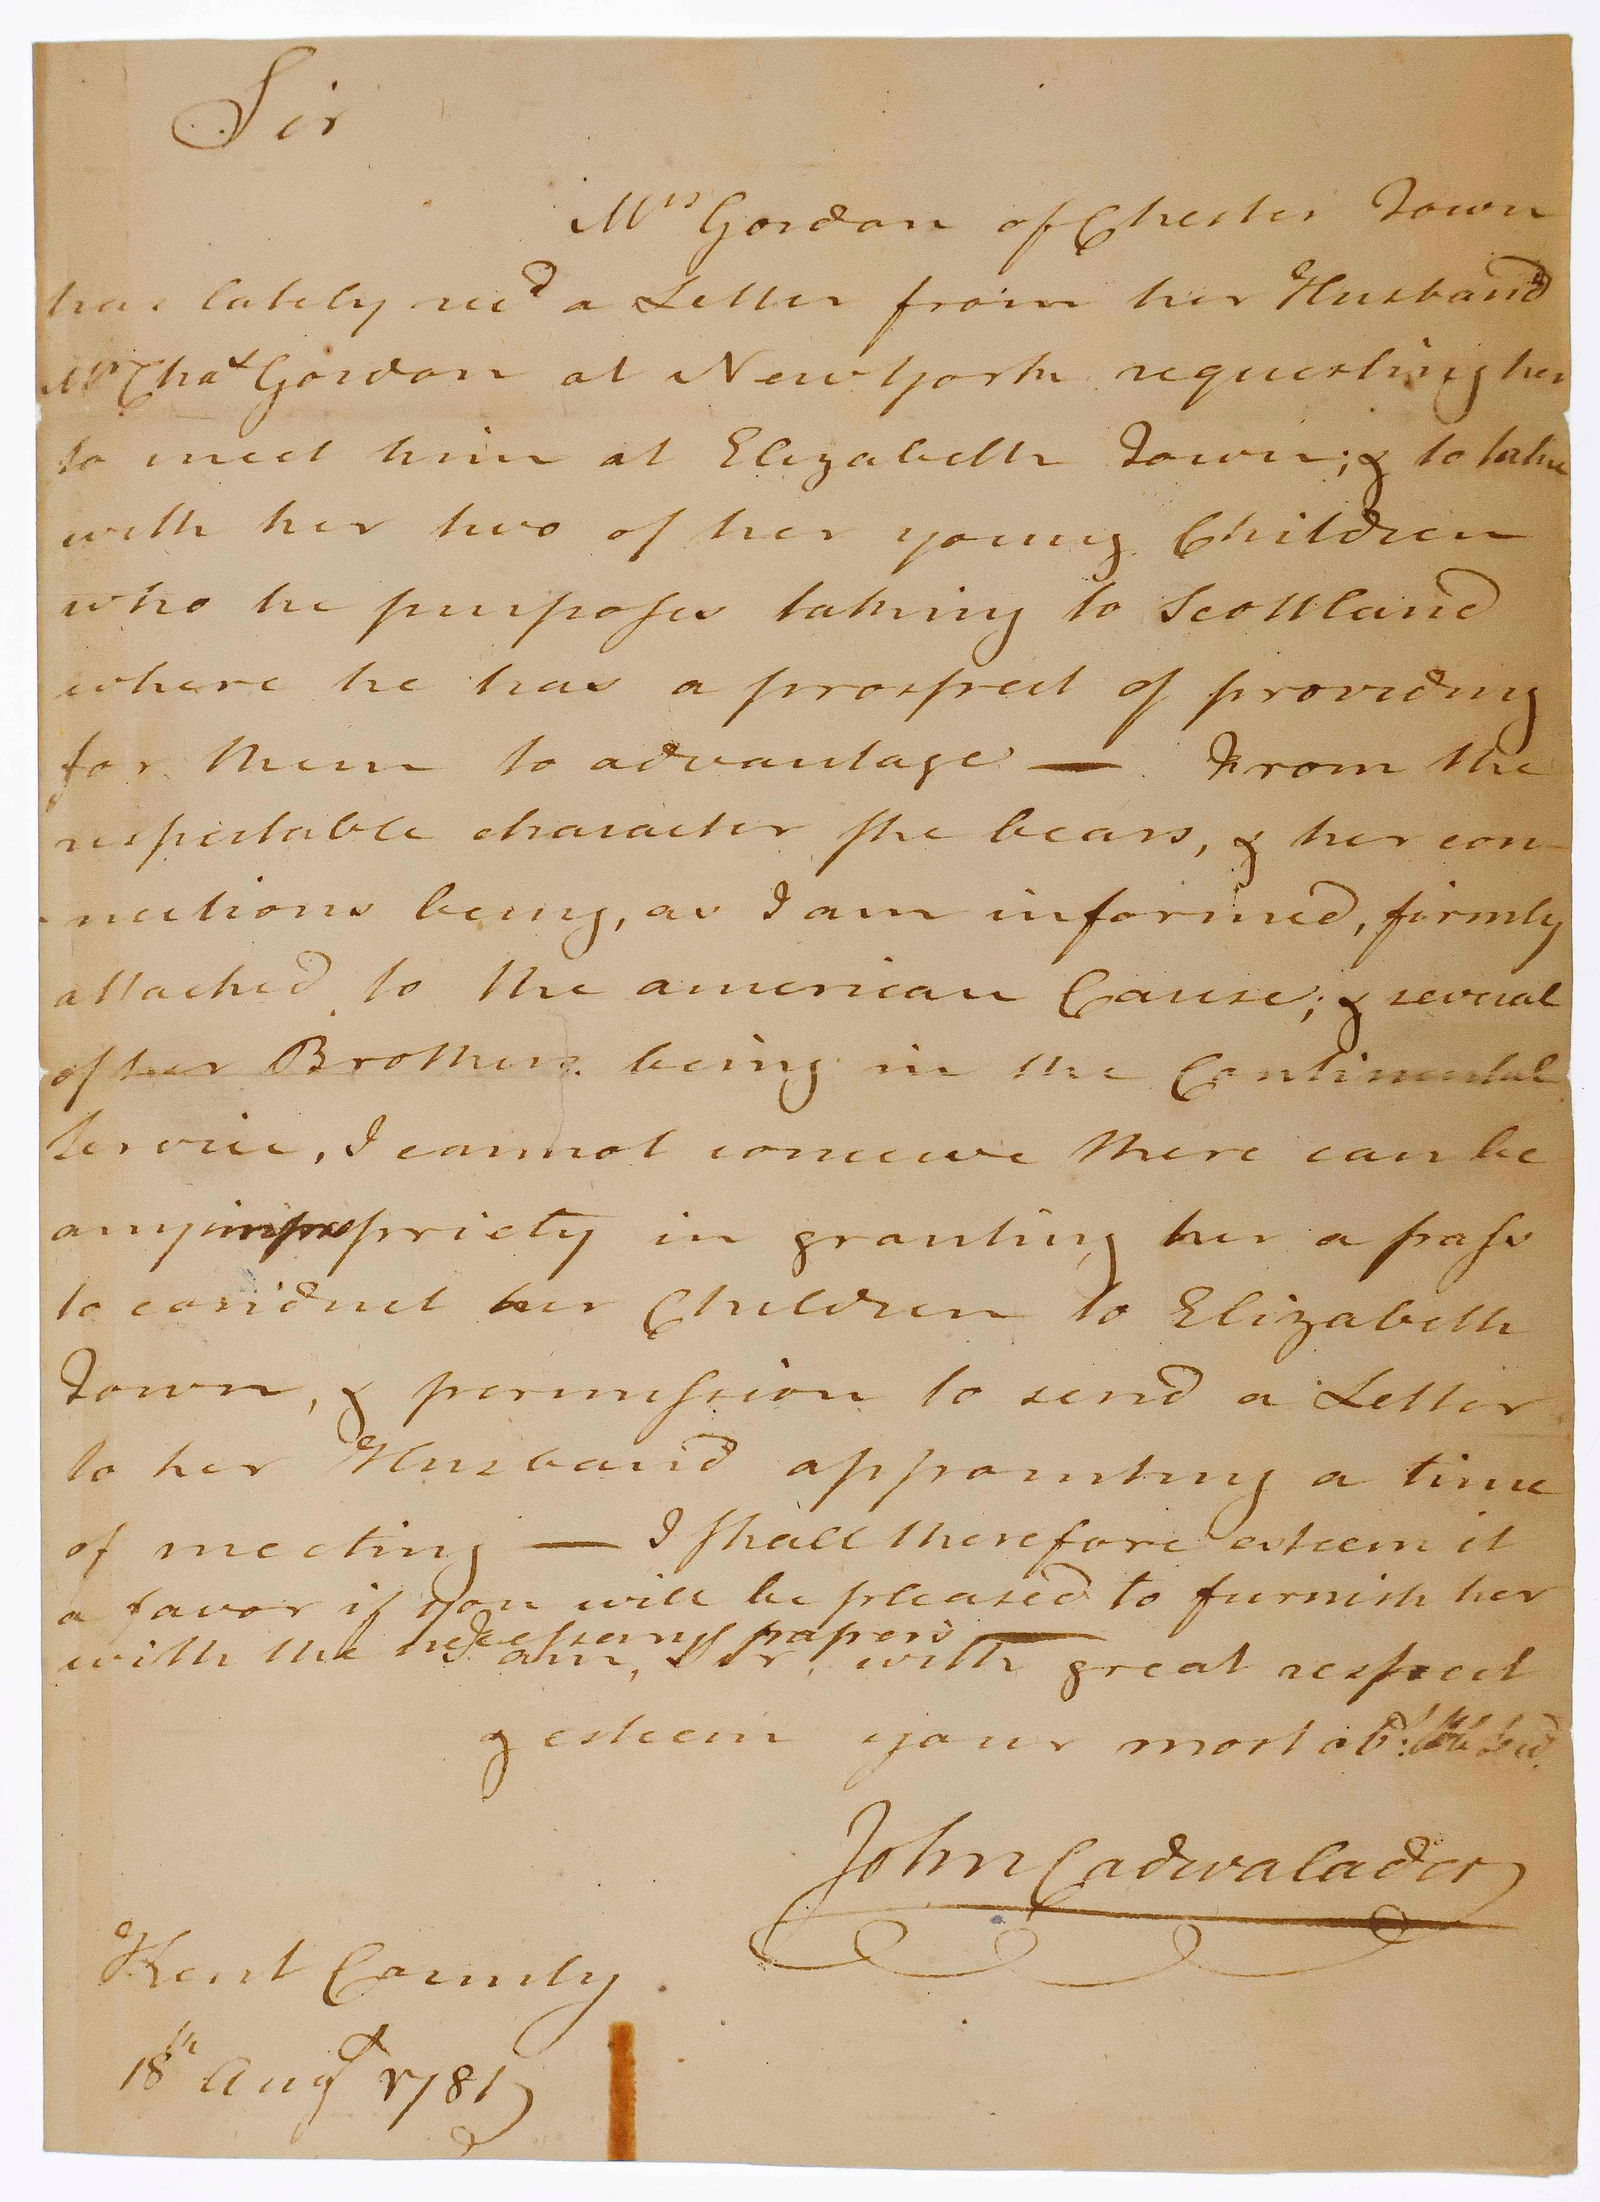 Sir
Mrs Gordon of Chester Town
has lately recd a Letter from her Husband
Mr Chas Gordon at New York requesting her
to meet him at Elizabeth Town; & to take
with her two of her young Children
who he purposes taking to Scottland
where he has a prospect of providing
for them to advantage — From the
respectable character she bears, & her con-
-nections being, as I am informed, firmly
attached to the american Cause; & several
of her Brothers being in the Continental
Service, I cannot conceive there can be
any impropriety in granting her a pass
to conduct her Children to Elizabeth
Town, & permission to send a Letter
to her Husband appointing a time
of meeting — I shall therefore esteem it
a favor if you will be pleased to furnish her
with the necessary papers —
I am, Sir, with great respect
& esteem your most obt
John Cadwalader
Kent County
18th Augt 1781